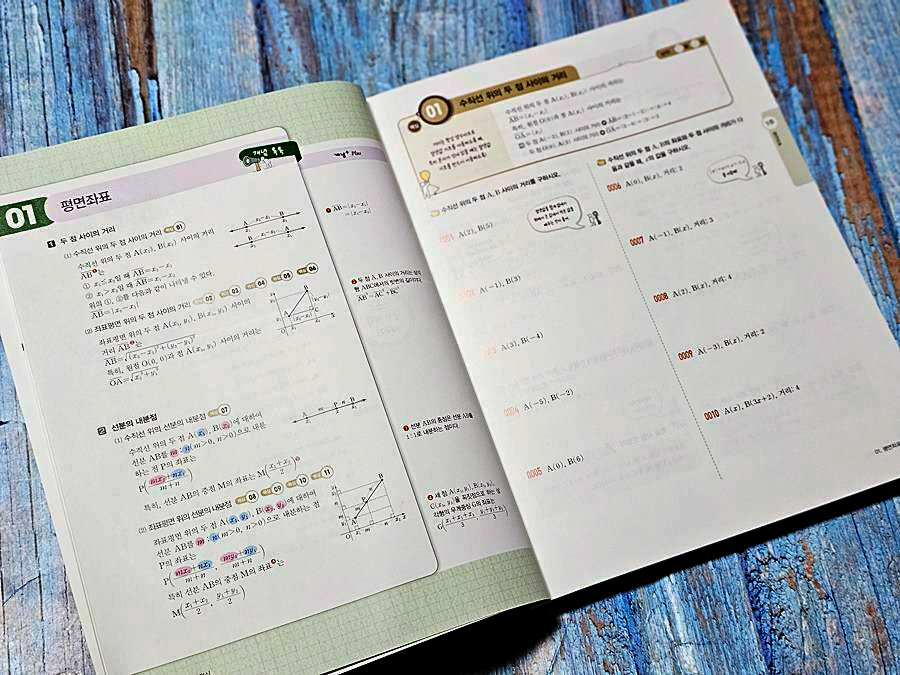 01 평면좌표
개념 톡톡
1 두 점 사이의 거리
(1) 수직선 위의 두 점 사이의 거리 01
수직선 위의 두 점 A(x₁), B(x₂) 사이의 거리
AB는
① x₁≤x₂일 때 AB=x₂-x₁
② x₁>x₂일 때 AB=x₁-x₂
위의 ①, ②를 다음과 같이 나타낼 수 있다.
AB=|x₂-x₁|
(2) 좌표평면 위의 두 점 사이의 거리 02 03 04 05 06
좌표평면 위의 두 점 A(x₁, y₁), B(x₂, y₂) 사이의
거리 AB는
AB=√(x₂-x₁)²+(y₂-y₁)²
특히, 원점 O(0, 0)과 점 A(x₁, y₁) 사이의 거리는
OA=√x₁²+y₁²
2 선분의 내분점
(1) 수직선 위의 선분의 내분점 07
수직선 위의 두 점 A(x₁), B(x₂)에 대하여
선분 AB를 m : n(m>0, n>0)으로 내분
하는 점 P의 좌표는
P(mx₂+nx₁/m+n)
특히, 선분 AB의 중점 M의 좌표는 M(x₁+x₂/2)
(2) 좌표평면 위의 선분의 내분점 08 09 10 11
좌표평면 위의 두 점 A(x₁, y₁), B(x₂, y₂)에 대하여
선분 AB를 m : n(m>0, n>0)으로 내분하는 점
P의 좌표는
P(mx₂+nx₁/m+n, my₂+ny₁/m+n)
특히 선분 AB의 중점 M의 좌표는
M(x₁+x₂/2, y₁+y₂/2)
개념+ Plus
AB=|x₂-x₁|
=|x₁-x₂|
두 점 A, B 사이의 거리는
ABC에서 빗변의 길이이다.
AB²=AC²+BC²
선분 AB의 중점은 선분 AB를
1 : 1로 내분하는 점이다.
세 점 A(x₁, y₁), B(x₂, y₂),
C(x₃, y₃)를 꼭짓점으로 하는 삼
각형의 무게중심 G의 좌표는
G(x₁+x₂+x₃/3, y₁+y₂+y₃/3)
01 수직선 위의 두 점 사이의 거리
수직선 위의 두 점 A(x₁), B(x₂) 사이의 거리는
AB=|x₂-x₁|
특히, 원점 O(0)과 점 A(x₁) 사이의 거리는
OA=|x₁|
수직선 위의 두 점 A, B 사이의 거리를 구하시오.
0001 A(2), B(5)
0002 A(-1), B(3)
0003 A(3), B(-4)
0004 A(-5), B(-2)
0005 A(0), B(6)
수직선 위의 두 점 A, B의 좌표와 두 점 사이의 거리가 다
음과 같을 때, x의 값을 구하시오.
0006 A(0), B(x), 거리: 2
0007 A(-1), B(x), 거리: 3
0008 A(2), B(x), 거리: 4
0009 A(-3), B(x), 거리: 2
0010 A(x), B(3x+2), 거리: 4